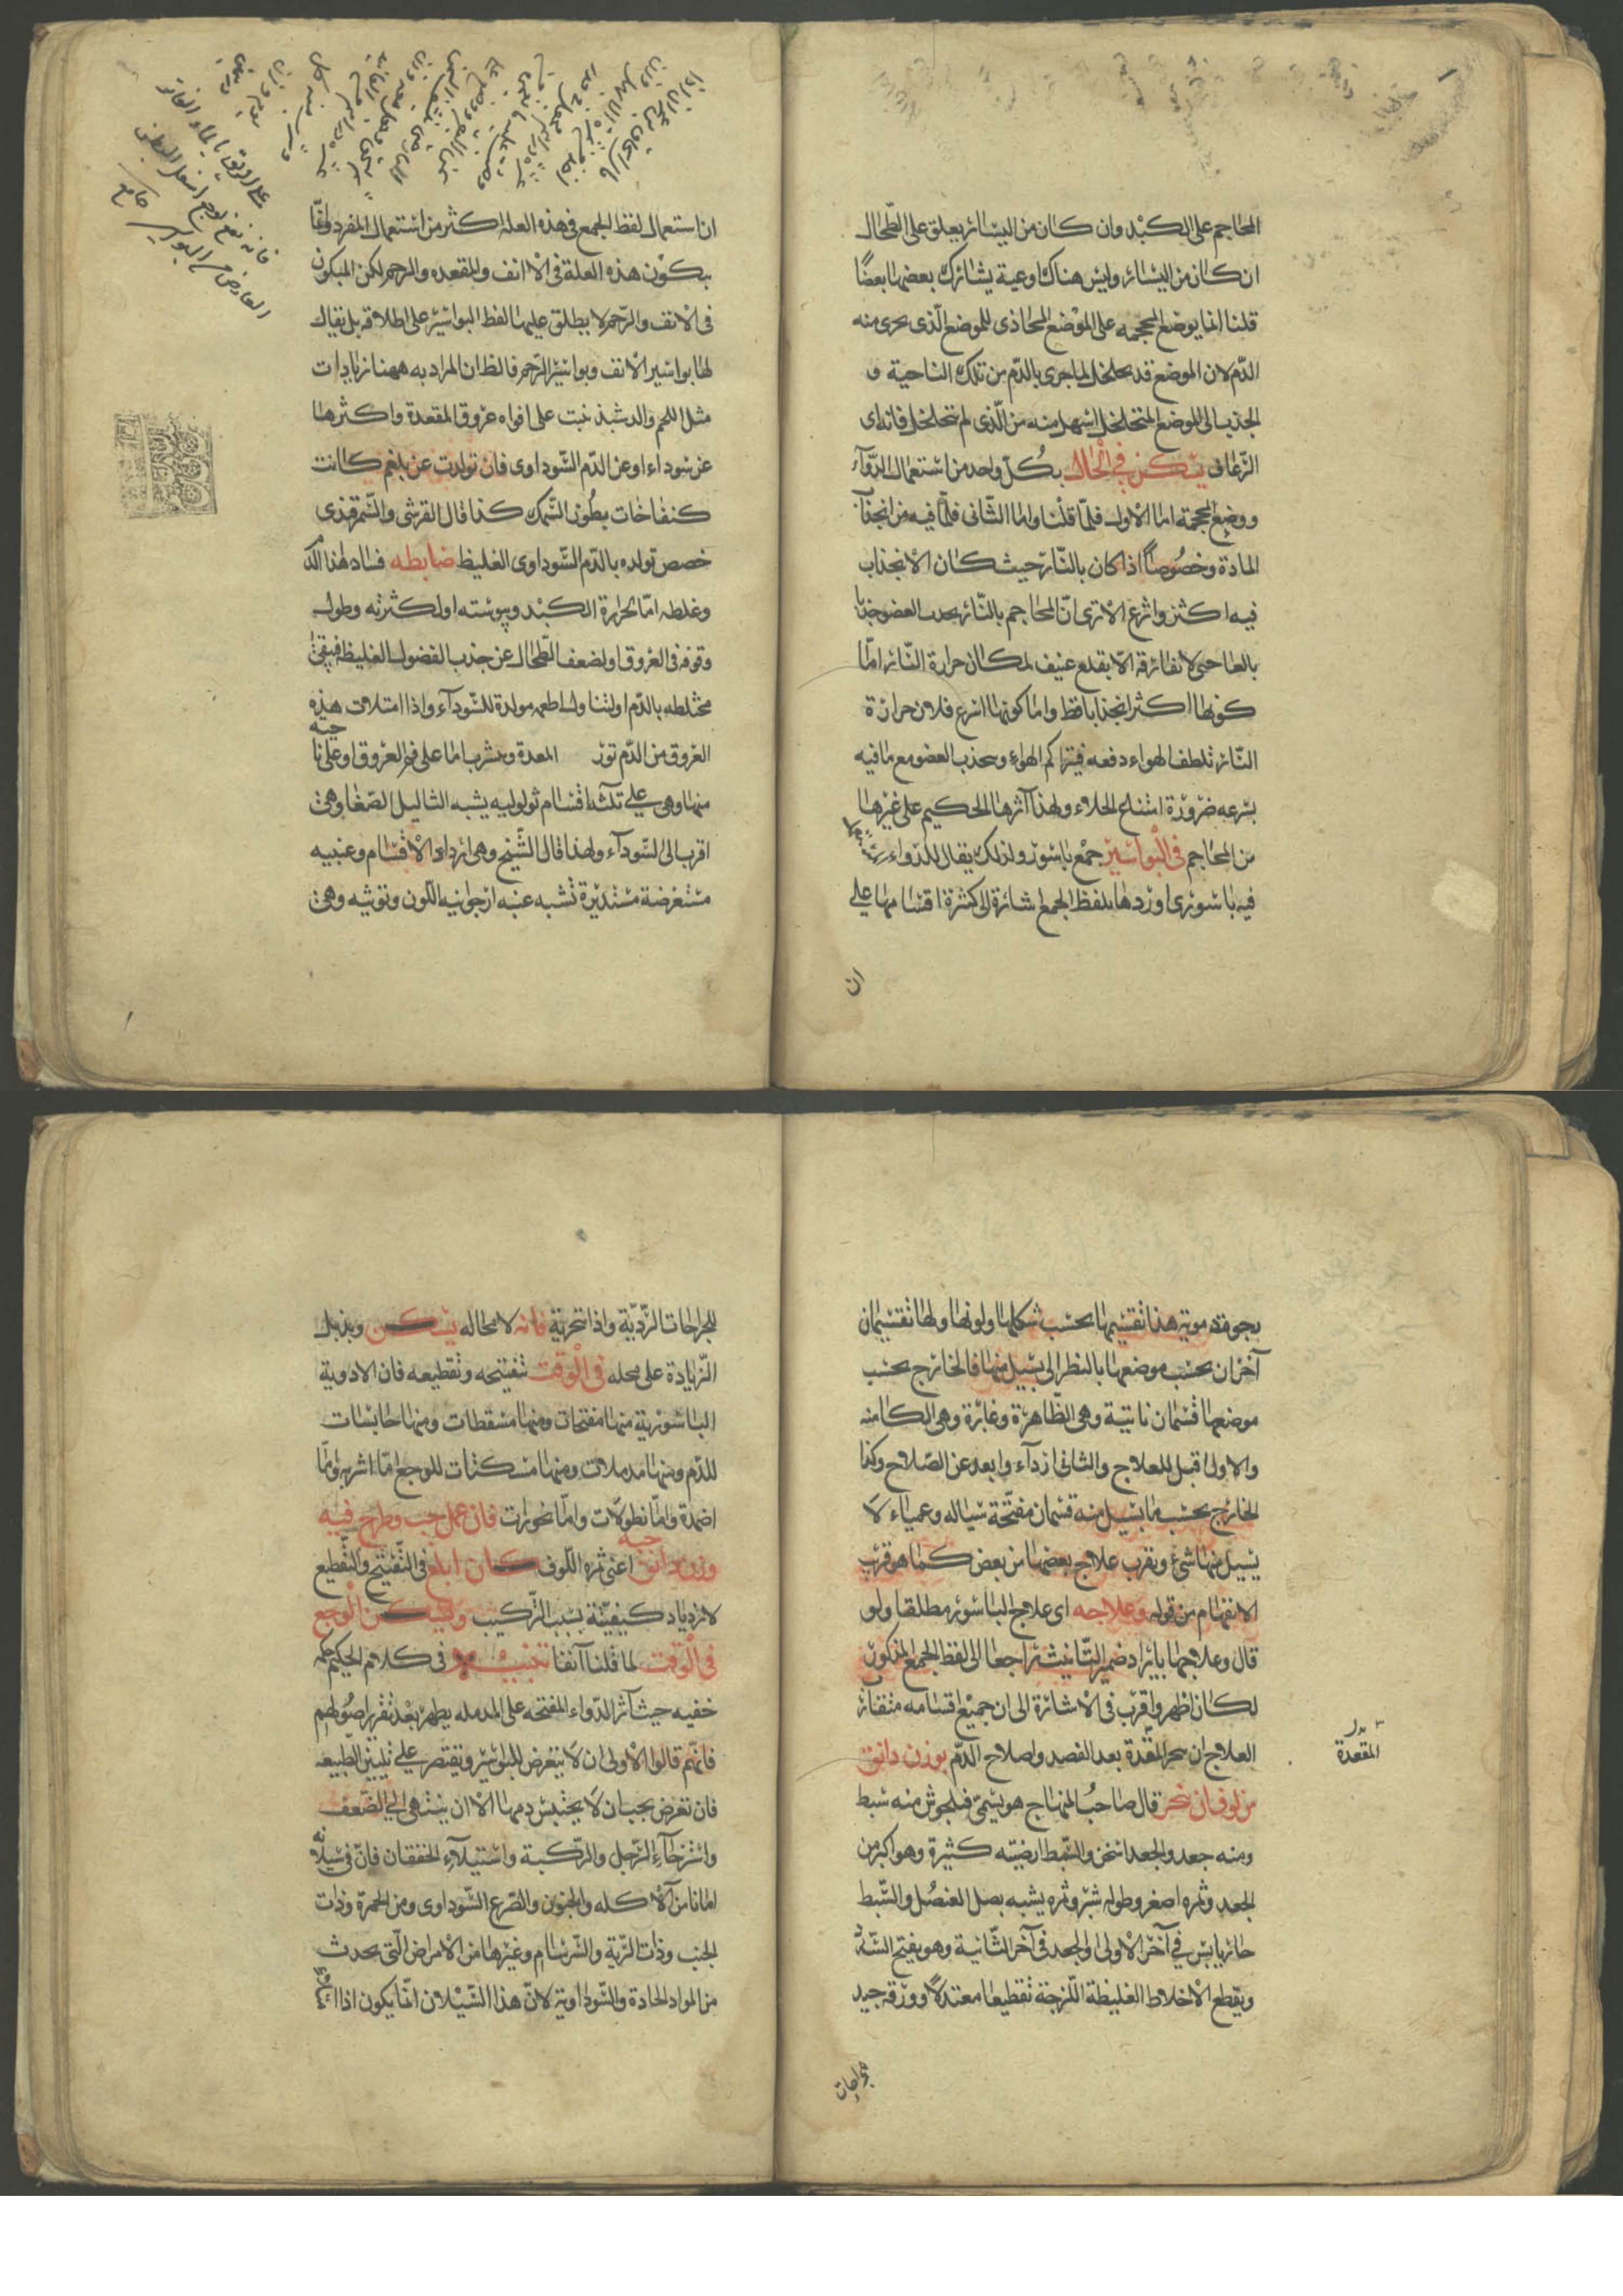 المحاجم على الكبد وان كان من اليسار يعلق على الطحال
ان كان من اليسار وليس هناك اوعية يشارك بعضها بعضًا
قلنا انما يوضع المحجمه على الموضع المحاذى للموضع الّذى يجرى منه
الدّم لان الموضع قد يخلخل لما جرى بالدّم من تلك الناحية و
الجذب الى الموضع المتخلخل اسهل منه من الّذى لم يتخلخل فانه اى
الرّعاف يسكن فى الحال بكلّ واحد من استعمال الدّوآء
ووضع المحجمة اما الاول فلما قلنا واما الثانى فلما فيه من انجذاب
المادة وخصُوصاً اذا كان بالنّار حيث كان الانجذاب
فيه اكثر واسرع الا ترى انّ المحاجم بالنّار يجذب العضو جذبا
حتى لا تفارقه الّا بقلع عنيف لمكان حرارة النّار امّا
كونها اكثر انجذابا فظ واما كونها اسرع فلان حرارة
النّار تلطف الهواء دفعه فيتراكم الهواء ويجذب العضو مع ما فيه
بسرعه ضرورة امتناع الخلاء ولهذا آثرها الحكيم على غيرها
من المحاجم فى البواسير جمع باسور ولذلك يقال للدّواء
فيه باسورى اوردها بلفظ الجمع اشارة الى كثرة اقسامها على
ان
ان استعمال لفظ الجمع فى هذه العلة اكثر من استعمال المفرد وانّما
يكون هذه العلة فى الانف والمقعده والرحم لكن المبكون
فى الانف والرّحم لا يطلق عليها لفظ البواسير على اطلاقه بل يقال
لها بواسير الانف وبواسير الرّحم فالظ ان المراد به ههنا زيادات
مثل اللحم والدشبذ نبت على افواه عروق المقعدة واكثرها
عن سوداء او عن الدّم السّوداوى فان تولدت عن بلغم كانت
كنفاخات بطون السّمك كذا قال القرشى والسّمرقندى
خصص تولده بالدّم السّوداوى الغليظ ضابطه فساد لهذا الدّم
وغلظه امّا لحرارة الكبد ويبوسته او لكثرته وطول
وقوفه فى العروق او لضعف الطّحال عن جذب الفضول الغليظه فيبقى
مختلطه بالدّم او لتناول اطعمه مولدة للسّودآء واذا امتلات هذه
العروق من الدّم تورّ المعدة ويشرب اما على فم العروق او على نا حيه
منها وهى على ثلثة اقسام ثولوليه يشبه الثاليل الصّغار وهى
اقرب الى السّودآء ولهذا قال الشّيخ وهى اردا الاقسام وعنبيه
مستعرضة مستديرة تشبه عنبه ارجوانيه اللّون وتوثيه وهى
يجوفة دمويّه هذا تقسيمها بحسب شكلها ولونها ولها تقسيمان
آخران بحسب موضعها بالنظر الى يسيل منها فالخارج بحسب
موضعها قسمان ناتية وهى الظّاهرة وغائرة وهى الكامنه
والاولى اقبل للعلاج والثانى ازدآء وابعد عن الصّلاح وكذا
الخارج بحسب ما يسيل منه قسمان مفتّحة سيّاله وعمياء لا
يسيل منها شئ ويقرب علاج بعضها من بعض كما هو قرب
الانفهام من قوله وعلاجه اى علاج الباسور مطلقا ولو
قال وعلاجها بايراد ضمير التّانيث راجعا الى لفظ الجمع المذكور
لكان اظهر واقرب فى الاشارة الى ان جميع اقسامه متقارب
العلاج ان يبخر المقعدة بعد الفصد واصلاح الدّم بوزن دانق
من لوفان يبخر قال صاحبُ المنهاج هو يسمّى فيلجوش منه سبط
ومنه جعد والجعد اسخن والسّبط ارضيّته كثيرة وهو اكبر من
الجعد وثمره اصغر وطوله شبر وثمره يشبه بصل العنصُل والسّبط
حار يابس فى آخر الاولى والجعد فى آخر الثّانية وهو يفتح السّدد
ويقطع الاخلاط الغليظة اللّزجة تقطيعا معتدلاً وورقه جيد
المقعدة
جراحات
للجراحات الرّديّة واذا تبخر به فانه لا محاله يسكن ويذبل
الزّيادة على محله فى الوقت تفتيحه وتقطيعه فان الادوية
الباسوريّة منها مفتحات ومنها مسقطات ومنها حابسات
للدّم ومنها مدملات ومنها مسكنات للوجع امّا اشربه وامّا
اضمدة وامّا نطولات وامّا بخورات فان عمل حب وطرح فيه
وزن دانق حبه اعنى ثمره اللّوف كان ابلغ فى التّفتيح والتّقطيع
لازدياد كيفيّته بسبب التّركيب ويسكن الوجع
فى الوقت لما قلنا آنفا تنبيه فى كلام الحكيم
خفيه حيث آثر الدّواء المفتحه على المدمله يظهر بعد تقرير اصُولهم
فانّهم قالوا الاولى ان لا يتعرض للبواسير ويقتصر على تليين الطّبيعه
فان تعرض يجب ان لا يحتبس دمها الا ان ينتهى الى الضّعف
واسترخآء الرّجل والرّكبة واستيلآء الخفقان فانّ فى سيلانه
امانا من الاكله والجنون والصّرع السّوداوى ومن الحمرة وذات
الجنب وذات الرّية والسّرسام وغيرها من الامراض الّتى يحدث
من المواد الحادة والسّوداويّه لانّ هذا السّيلان انّما يكون اذا